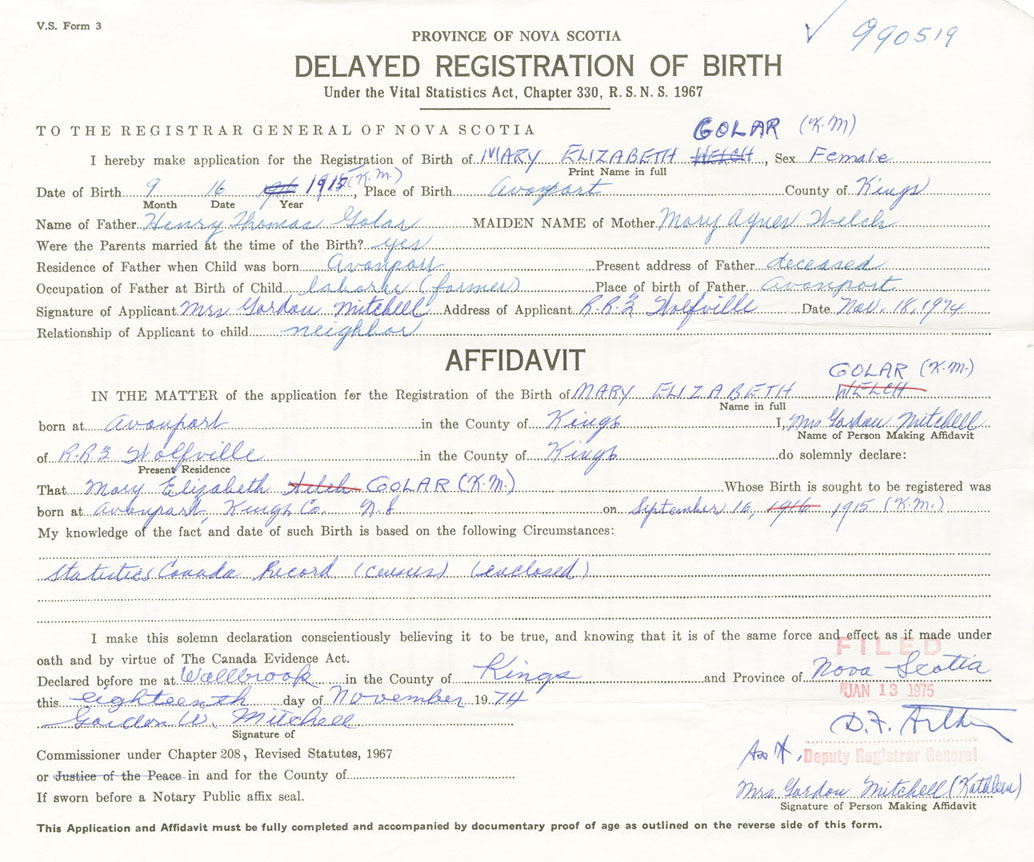 V.S. Form 3
✓ 990519
PROVINCE OF NOVA SCOTIA
DELAYED REGISTRATION OF BIRTH
Under the Vital Statistics Act, Chapter 330, R.S.N.S. 1967
TO THE REGISTRAR GENERAL OF NOVA SCOTIA GOLAR (K.M)
I hereby make application for the Registration of Birth of MARY ELIZABETH WELCH, Sex Female
Print Name in full
Date of Birth 9 16 1916 1915 (K.M.), Place of Birth Avonport County of Kings
Month Date Year
Name of Father Henry Thomas Golar MAIDEN NAME of Mother Mary Agnes Welch
Were the Parents married at the time of the Birth? yes
Residence of Father when Child was born Avonport Present address of Father deceased
Occupation of Father at Birth of Child (farmer) Place of birth of Father Avonport
Signature of Applicant Mrs Gordon Mitchell Address of Applicant R.R.2 Wolfville Date Nov. 18, 1974
Relationship of Applicant to child neighbor
AFFIDAVIT
GOLAR (K.M.)
IN THE MATTER of the application for the Registration of the Birth of MARY ELIZABETH WELCH
Name in full
born at Avonport in the County of Kings I, Mrs Gordon Mitchell
Name of Person Making Affidavit
of R.R.2 Wolfville in the County of Kings do solemnly declare:
Present Residence
That Mary Elizabeth Welch GOLAR (K.M.) Whose Birth is sought to be registered was
born at Avonport, Kings Co. N.S on September 16, 1916 1915 (K.M.)
My knowledge of the fact and date of such Birth is based on the following Circumstances:
Statistics Canada Record (census) (enclosed)
I make this solemn declaration conscientiously believing it to be true, and knowing that it is of the same force and effect as if made under
oath and by virtue of The Canada Evidence Act.
FILED
Declared before me at Wallbrook in the County of Kings and Province of Nova Scotia
JAN 13 1975
this eighteenth day of November 1974
Gordon W. Mitchell
Signature of
Commissioner under Chapter 208, Revised Statutes, 1967
Deputy Registrar General
or Justice of the Peace in and for the County of
Mrs Gordon Mitchell (Kathleen)
If sworn before a Notary Public affix seal.
Signature of Person Making Affidavit
This Application and Affidavit must be fully completed and accompanied by documentary proof of age as outlined on the reverse side of this form.